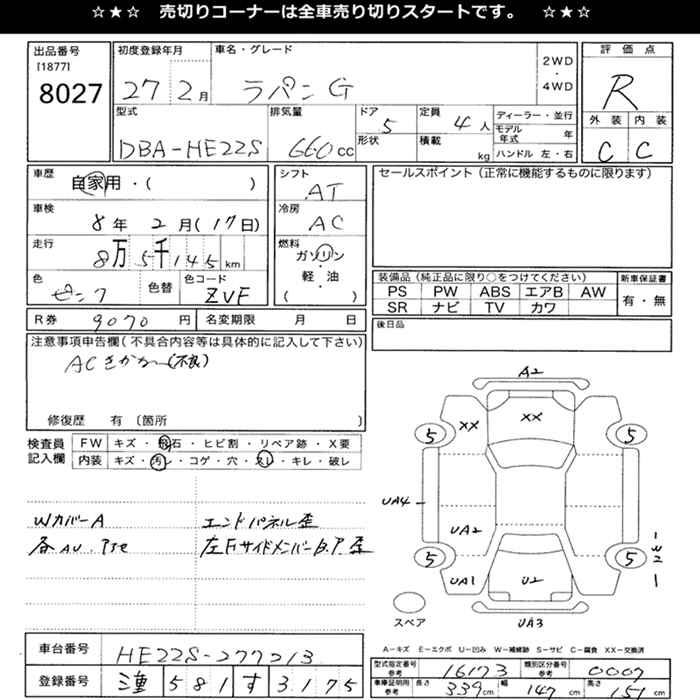 ☆★☆ 売切りコーナーは全車売り切りスタートです。 ☆★☆
出品番号 [1877] 8027
初度登録年月 27 2月
車名・グレード ラパン G
2WD ・ 4WD
評価点 R
外装 C 内装 C
型式 DBA-HE22S
排気量 660 cc
ドア 5 形状
定員 4人 積載 kg
ディーラー・並行
モデル年式 年
ハンドル 左・右
車歴 自家用・( )
シフト AT
セールスポイント(正常に機能するものに限ります)
車検 8年 2月(17日)
冷房 AC
走行 8万5千145km
燃料 ガソリン・軽・油 ( )
色 ピンク 色替 色コード ZVF
装備品(純正品に限り○をつけてください)
PS PW ABS エアB AW
SR ナビ TV カワ
新車保証書 有・無
R券 9070円 名変期限 月 日
後日品
注意事項申告欄(不具合内容等は具体的に記入して下さい)
AC きかない(不良)
修復歴 有 〔箇所
検査員記入欄
FW キズ・飛石・ヒビ割・リペア跡・X要
内装 キズ・汚レ・コゲ・穴・スレ・キレ・破レ
WカバーA エンドパネル歪
各AU.
左FサイドメンバーB.P.歪
A2
XX XX
5 5
UA4
UA2
W2
5 5
UA1 U2
UA3
スペア
A―キズ E―エクボ U―凹み W―補修跡 S―サビ C―腐食 XX―交換済
車台番号 HE22S-277213
登録番号 581 す 3175
型式指定番号 参考 16173 類別区分番号 参考 0007
車庫証明用 参考 長さ 339cm 幅 147cm 高さ 151cm